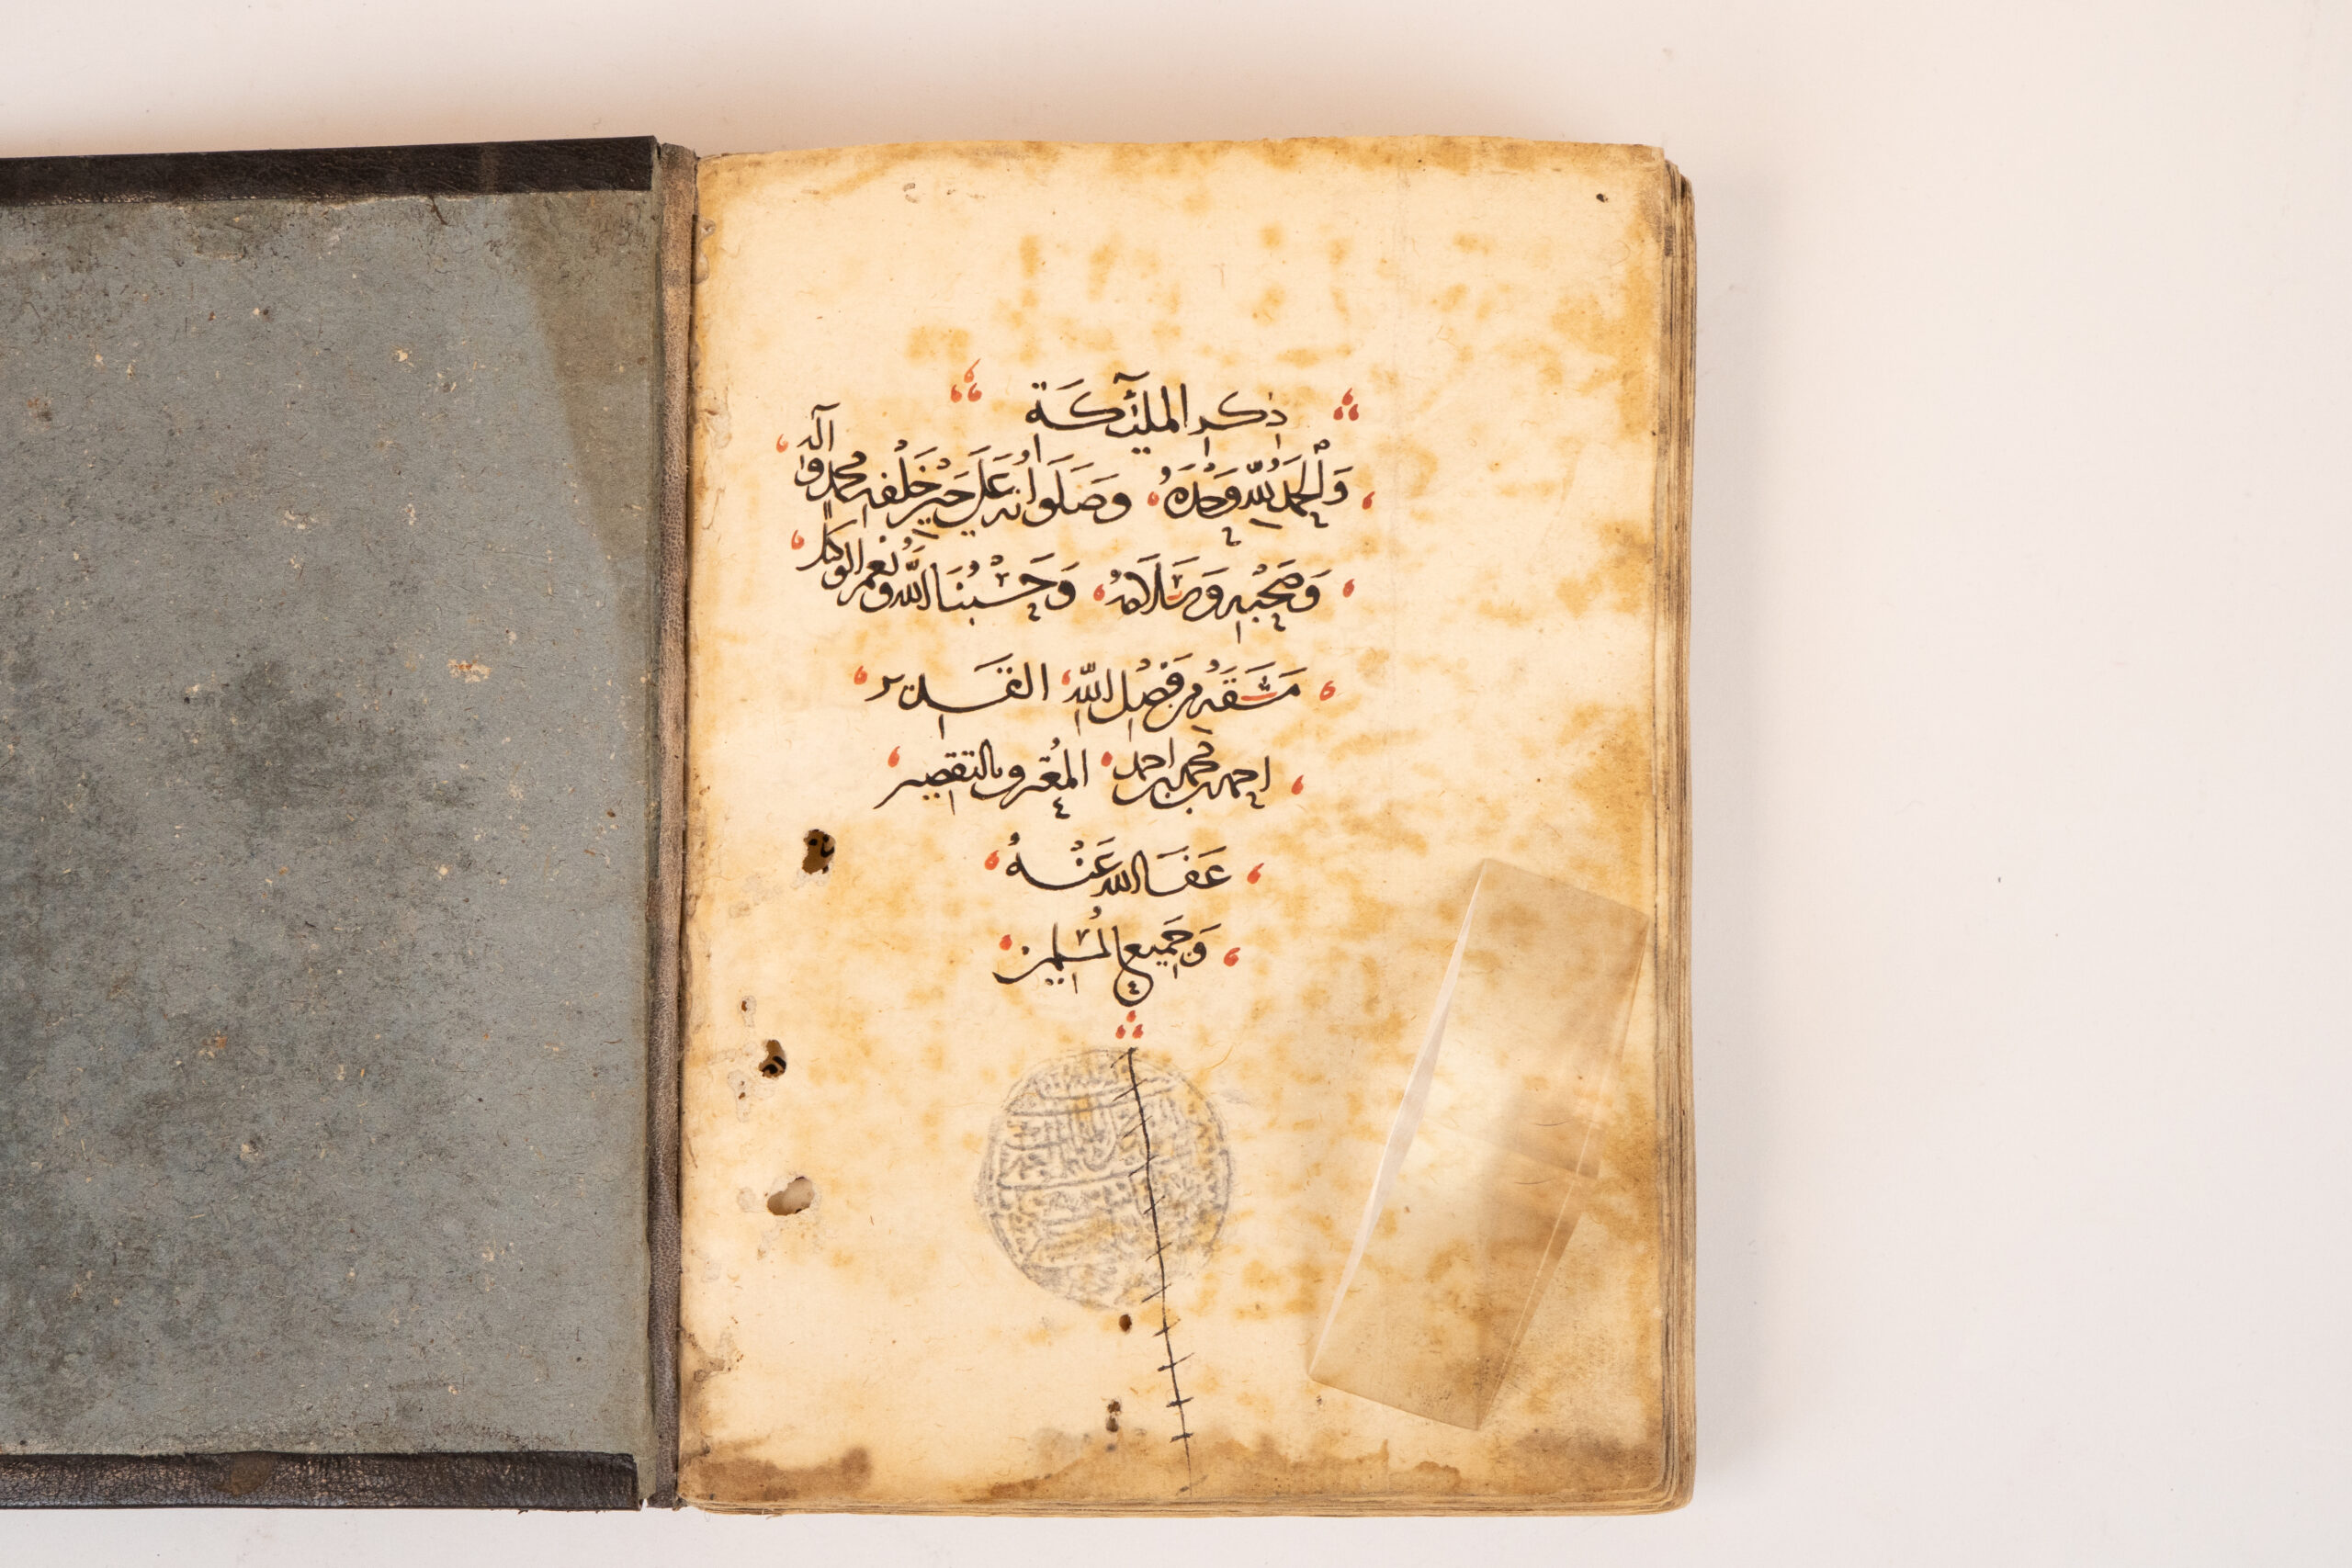 ذِكرِ الملٰئِكَة
وَالْحَمْدُ لِلّٰهِ وَحْدَهُ وَصَلَوَاتُهُ عَلَى خَيْرِ خَلْقِهِ مُحَمَّدٍ وَآلِهِ
وَصَحْبِهِ وَسَلَامُهُ وَحَسْبُنَا اللّٰهُ وَنِعْمَ الوكيل
مَشَقَهُ مِن فَضْلِ اللّٰهِ القَدِير
احمد بن محمد بن احمد المُعْترف بالتقصير
عَفَا الله عَنْهُ
وَجَمِيعِ المُسْلِمِين